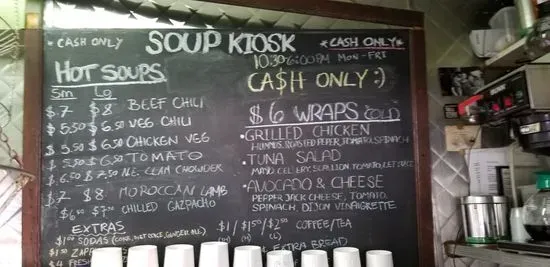 * CASH ONLY
SOUP KIOSK
* CASH ONLY *
10:30-6:00PM MON-FRI
CA$H ONLY :)
HOT SOUPS
Sm Lg
$7 $8 BEEF CHILI
$5.50 $6.50 VEG CHILI
$5.50 $6.50 CHICKEN VEG
$5.50 $6.50 TOMATO
$6.50 $7.50 N.E. CLAM CHOWDER
$7 $8 MOROCCAN LAMB
$6.50 $7.50 CHILLED GAZPACHO
EXTRAS
$1.00 SODAS (COKE, DIET COKE, GINGER ALE)
$1.50
$4 FRESH
$6 WRAPS COLD
• GRILLED CHICKEN
HUMMUS, ROASTED PEPPER, TOMATO, SPINACH
• TUNA SALAD
MAYO, CELERY, SCALLION, TOMATO, LETTUCE
• AVOCADO & CHEESE
PEPPER JACK CHEESE, TOMATO,
SPINACH, DIJON VINAIGRETTE
$1 / $1.50 / $2.00 COFFEE/TEA
EXTRA BREAD